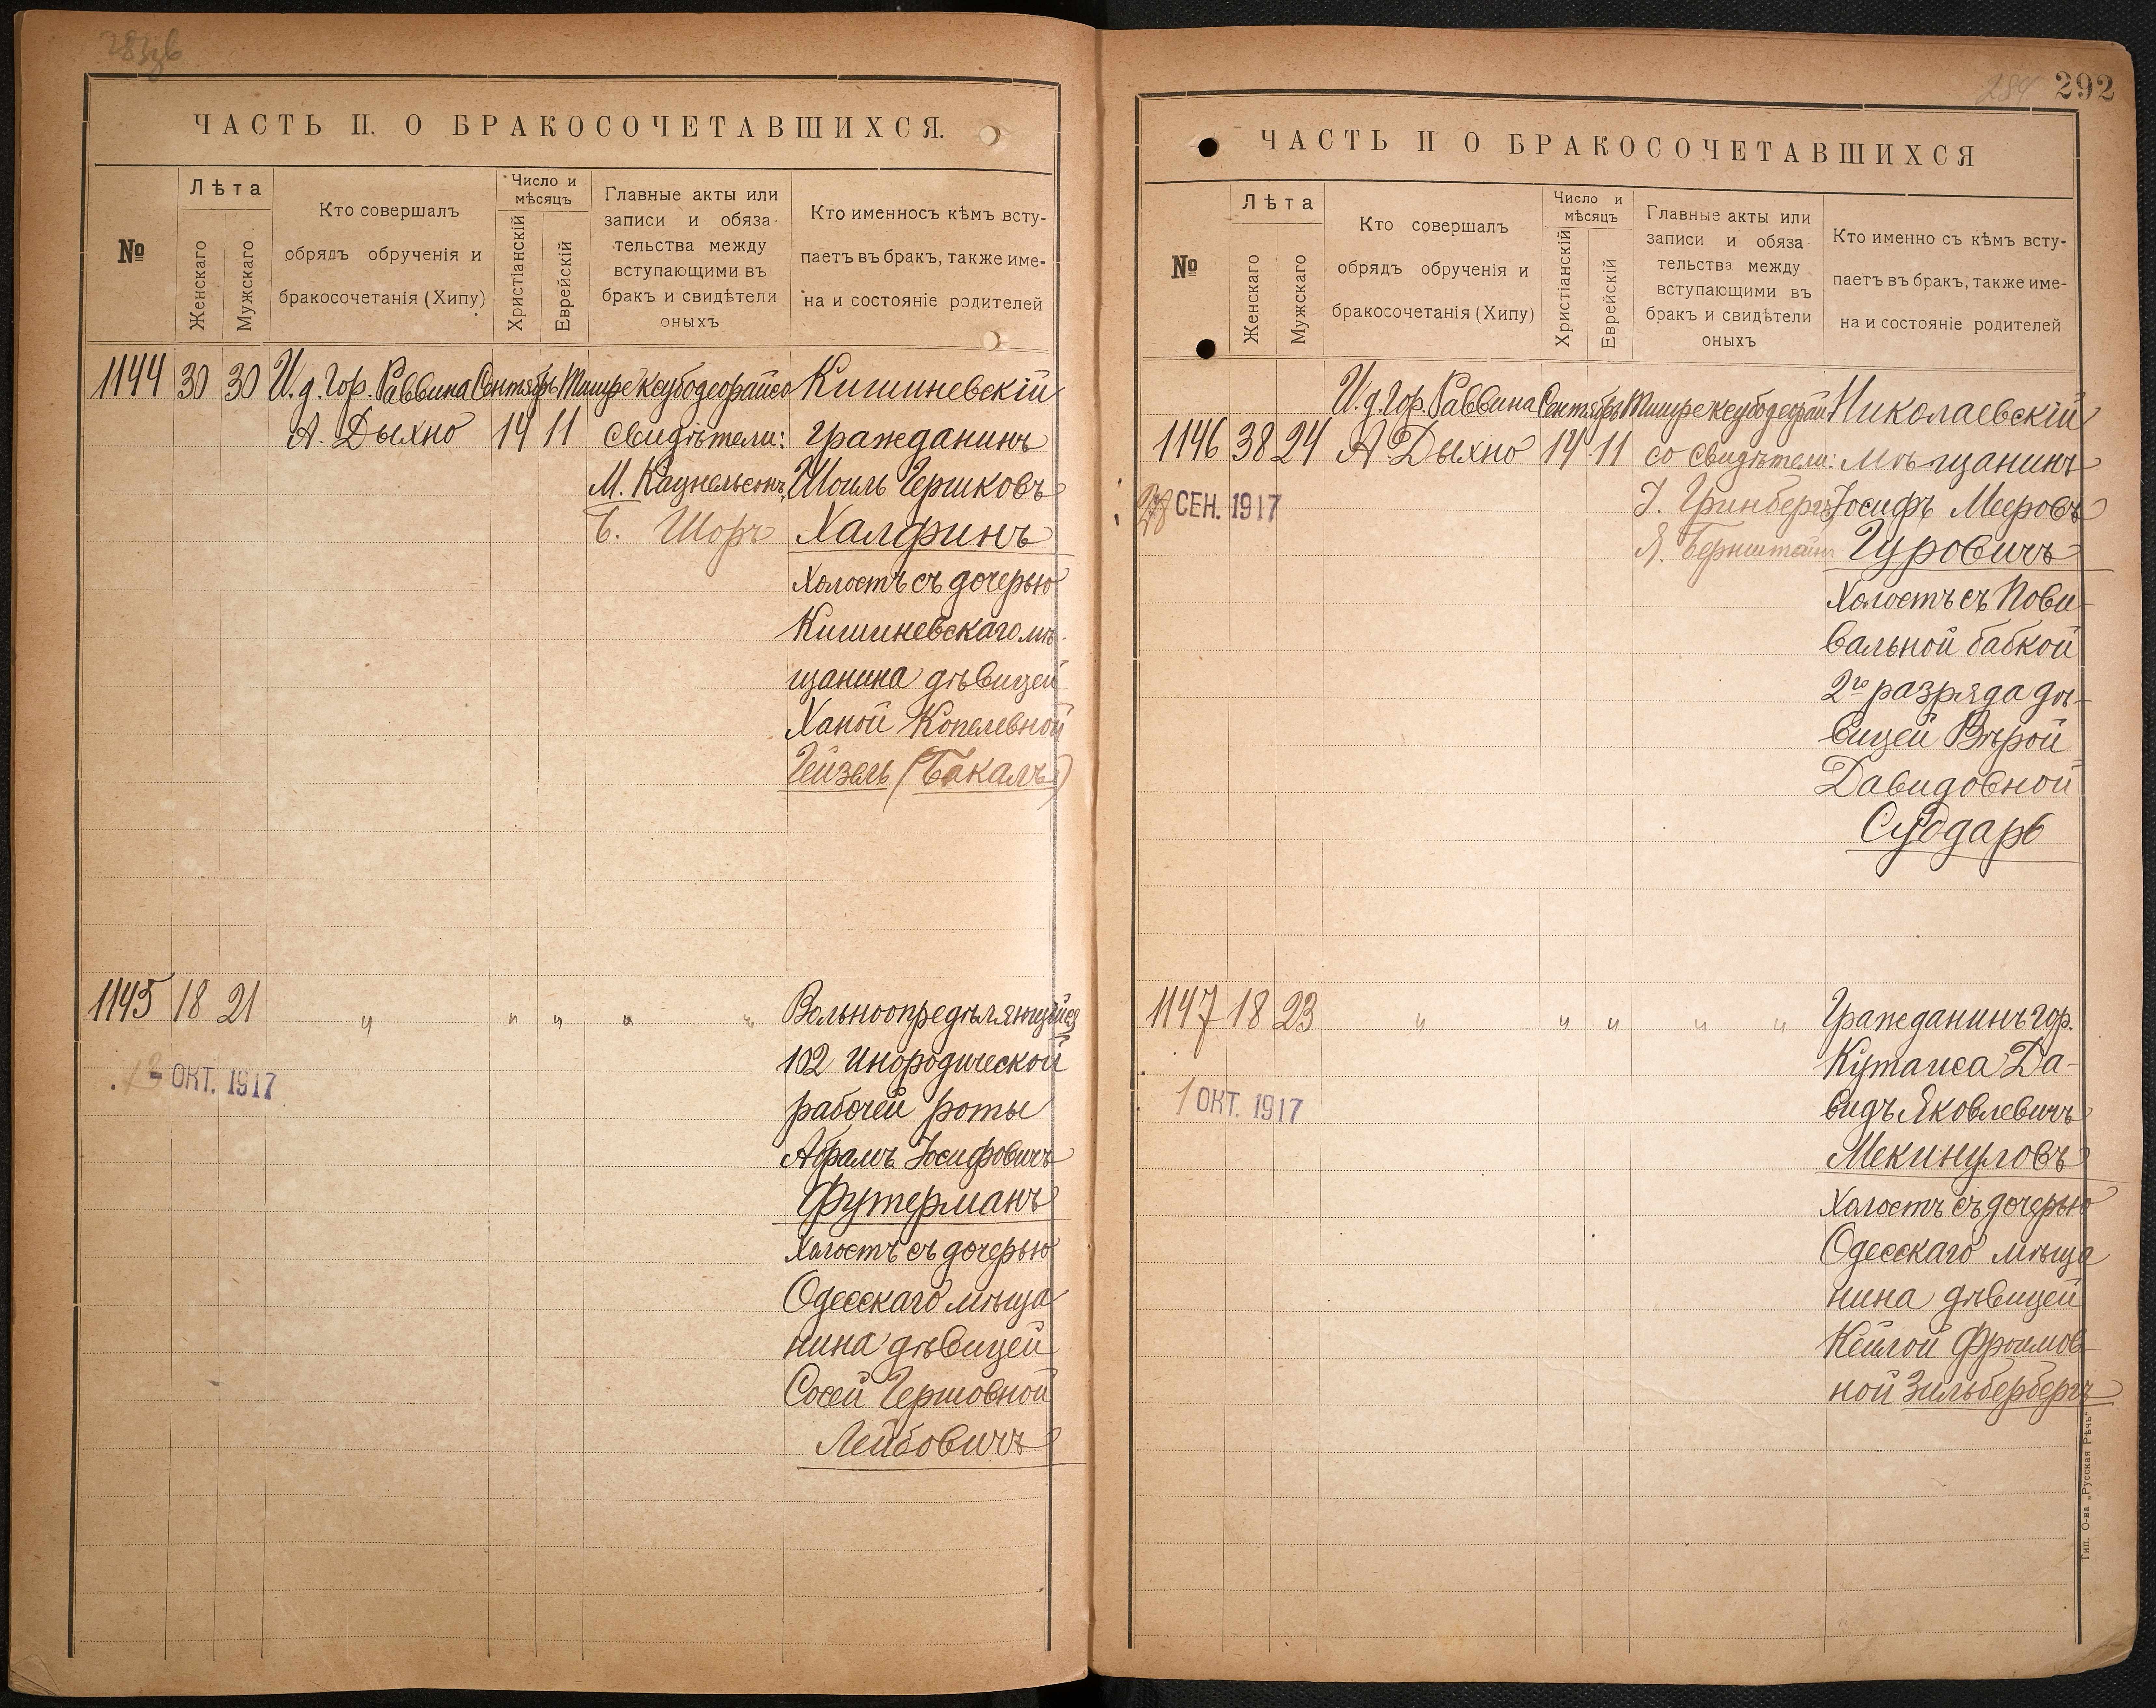 ЧАСТЬ II. О БРАКОСОЧЕТАВШИХСЯ.
№
Лѣта
Женскаго
Мужскаго
Кто совершалъ
обрядъ обрученія и
бракосочетанія (Хипу)
Число и
мѣсяцъ
Христіанскій
Еврейскій
Главные акты или
записи и обяза-
тельства между
вступающими въ
бракъ и свидѣтели
оныхъ
Кто именносъ кѣмъ всту-
паетъ въ бракъ, также име-
на и состояніе родителей
1144 30 30 И.д. Гор. Раввина Сентябрь Тишре Ксубодеорайсо Кишиневскій
А. Дыхно 14 11 свидѣтели: гражданинъ
М. Кацнельсонъ, Шоиль Гершковъ
Б. Шоръ Халфинъ
холостъ съ дочерью
Кишиневскаго мѣ-
щанина дѣвицей
Ханой Копелевной
Гейзель (Бакалъ)
1145 18 21 " " " " " Вольноопредѣляющійся
ОКТ. 1917
102 Инородческой
рабочей роты
Абрамъ Іосифовичъ
Футерманъ
холостъ съ дочерью
Одесскаго мѣща
нина дѣвицей
Сосей Гершовной
Лейбовичъ
292
ЧАСТЬ II О БРАКОСОЧЕТАВШИХСЯ
№
Лѣта
Женскаго
Мужскаго
Кто совершалъ
обрядъ обрученія и
бракосочетанія (Хипу)
Число и
мѣсяцъ
Христіанскій
Еврейскій
Главные акты или
записи и обяза-
тельства между
вступающими въ
бракъ и свидѣтели
оныхъ
Кто именно съ кѣмъ всту-
паетъ въ бракъ, также име-
на и состояніе родителей
И.д. Гор. Раввина Сентябрь Тишре ксубодеорай Николаевскій
1146 38 24 А Дыхно 14 11 со свидѣтели: мѣщанинъ
СЕН. 1917
І. Гринбергъ Іосифъ Мееровъ
Я. Бернштейн Гуровичъ
холостъ съ Пови-
вальной бабкой
2го разряда дѣ-
вицей Вѣрой
Давидовной
Судодарь
1147 18 23 " " " " " Гражданинъ гор.
1 ОКТ. 1917
Кутаиса Да-
видъ Яковлевичъ
Мекинуловъ
холостъ съ дочерью
Одесскаго мѣща
нина дѣвицей
Кейлой Фроимов
ной Зильбербергъ
Тип. О-ва „Русская Рѣчь"